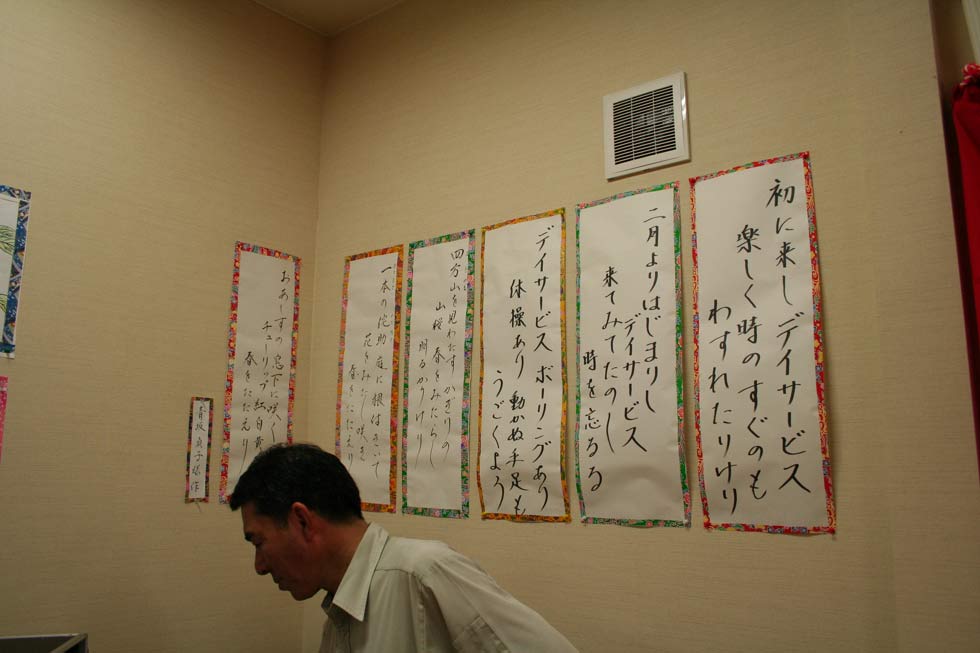 初に来し デイサービス
楽しく 時のすぐのも
わすれたりけり
二月よりはじまりし
デイサービス
来てみてたのし
時を忘るる
デイサービス ボーリングあり
体操あり 動かぬ手足も
うごくよう
四方山を見わたす かぎりの
山桜 春をみたらし
明るかりけり
一本の侘助 庭に根はきいて
花をみたし咲き
春をたたえり
おあしすの 窓下に咲く
チューリップ 紅白黄
春をたたえり
貞子様作